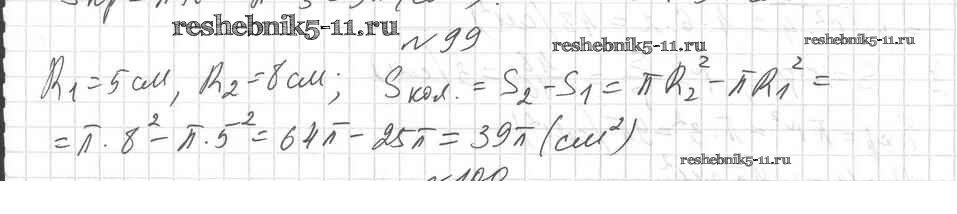 reshebnik5-11.ru
№ 99
reshebnik5-11.ru
reshebnik5-11.ru
R₁=5см, R₂=8см; Sкол. = S₂-S₁ = πR₂²-πR₁² =
= π·8²-π·5² = 64π-25π = 39π (см²)
reshebnik5-11.ru
№100